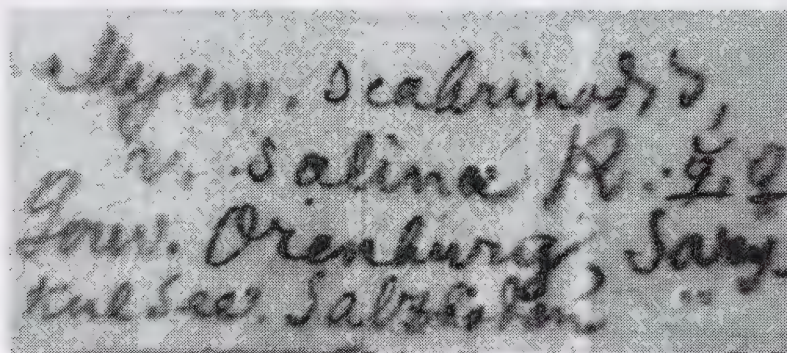 Myrm. scabrinodis,
v. salina R. ☿, ♀
Gouv. Orenburg, Sary
Kul See. Salzboden